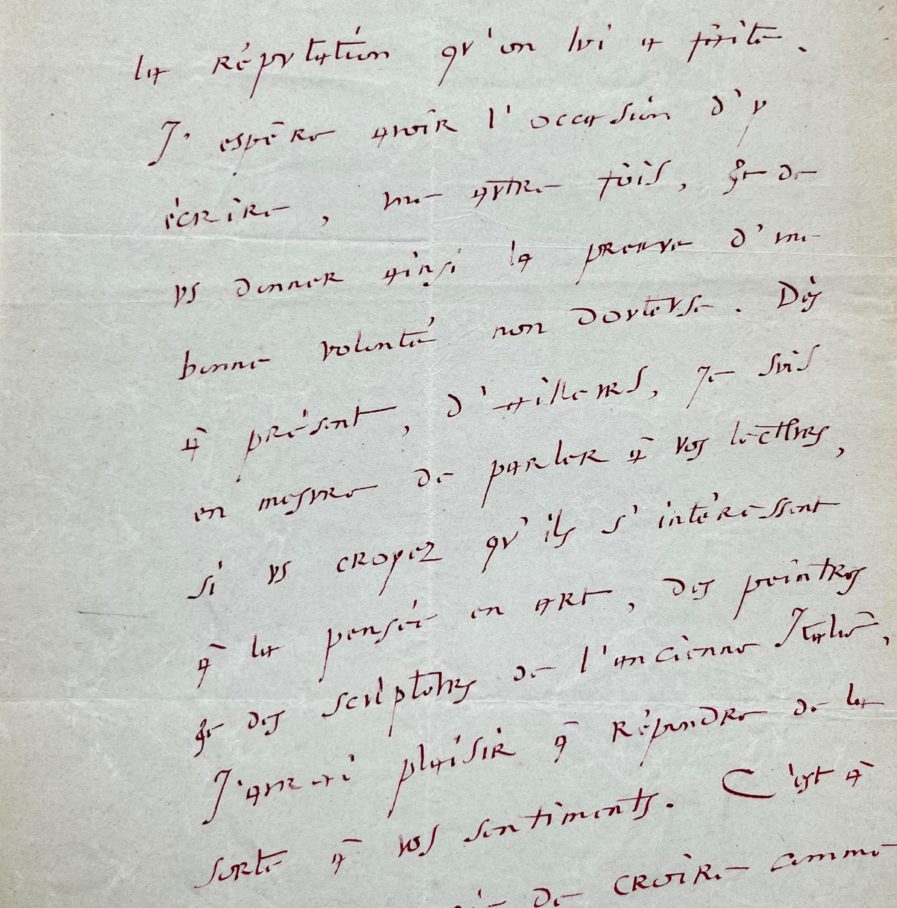 la réputation qu'on lui a faite.
J'espère avoir l'occasion d'y
écrire, une autre fois, & de
vs donner ainsi la preuve d'une
bonne volonté non douteuse. Dès
à présent, d'ailleurs, je suis
en mesure de parler à vos lecteurs,
si vs croyez qu'ils s'intéressent
à la pensée en art, des peintres
& des sculpteurs de l'ancienne Italie,
J'aurai plaisir à répondre de la
sorte à vos sentiments. C'est à
de croire comme